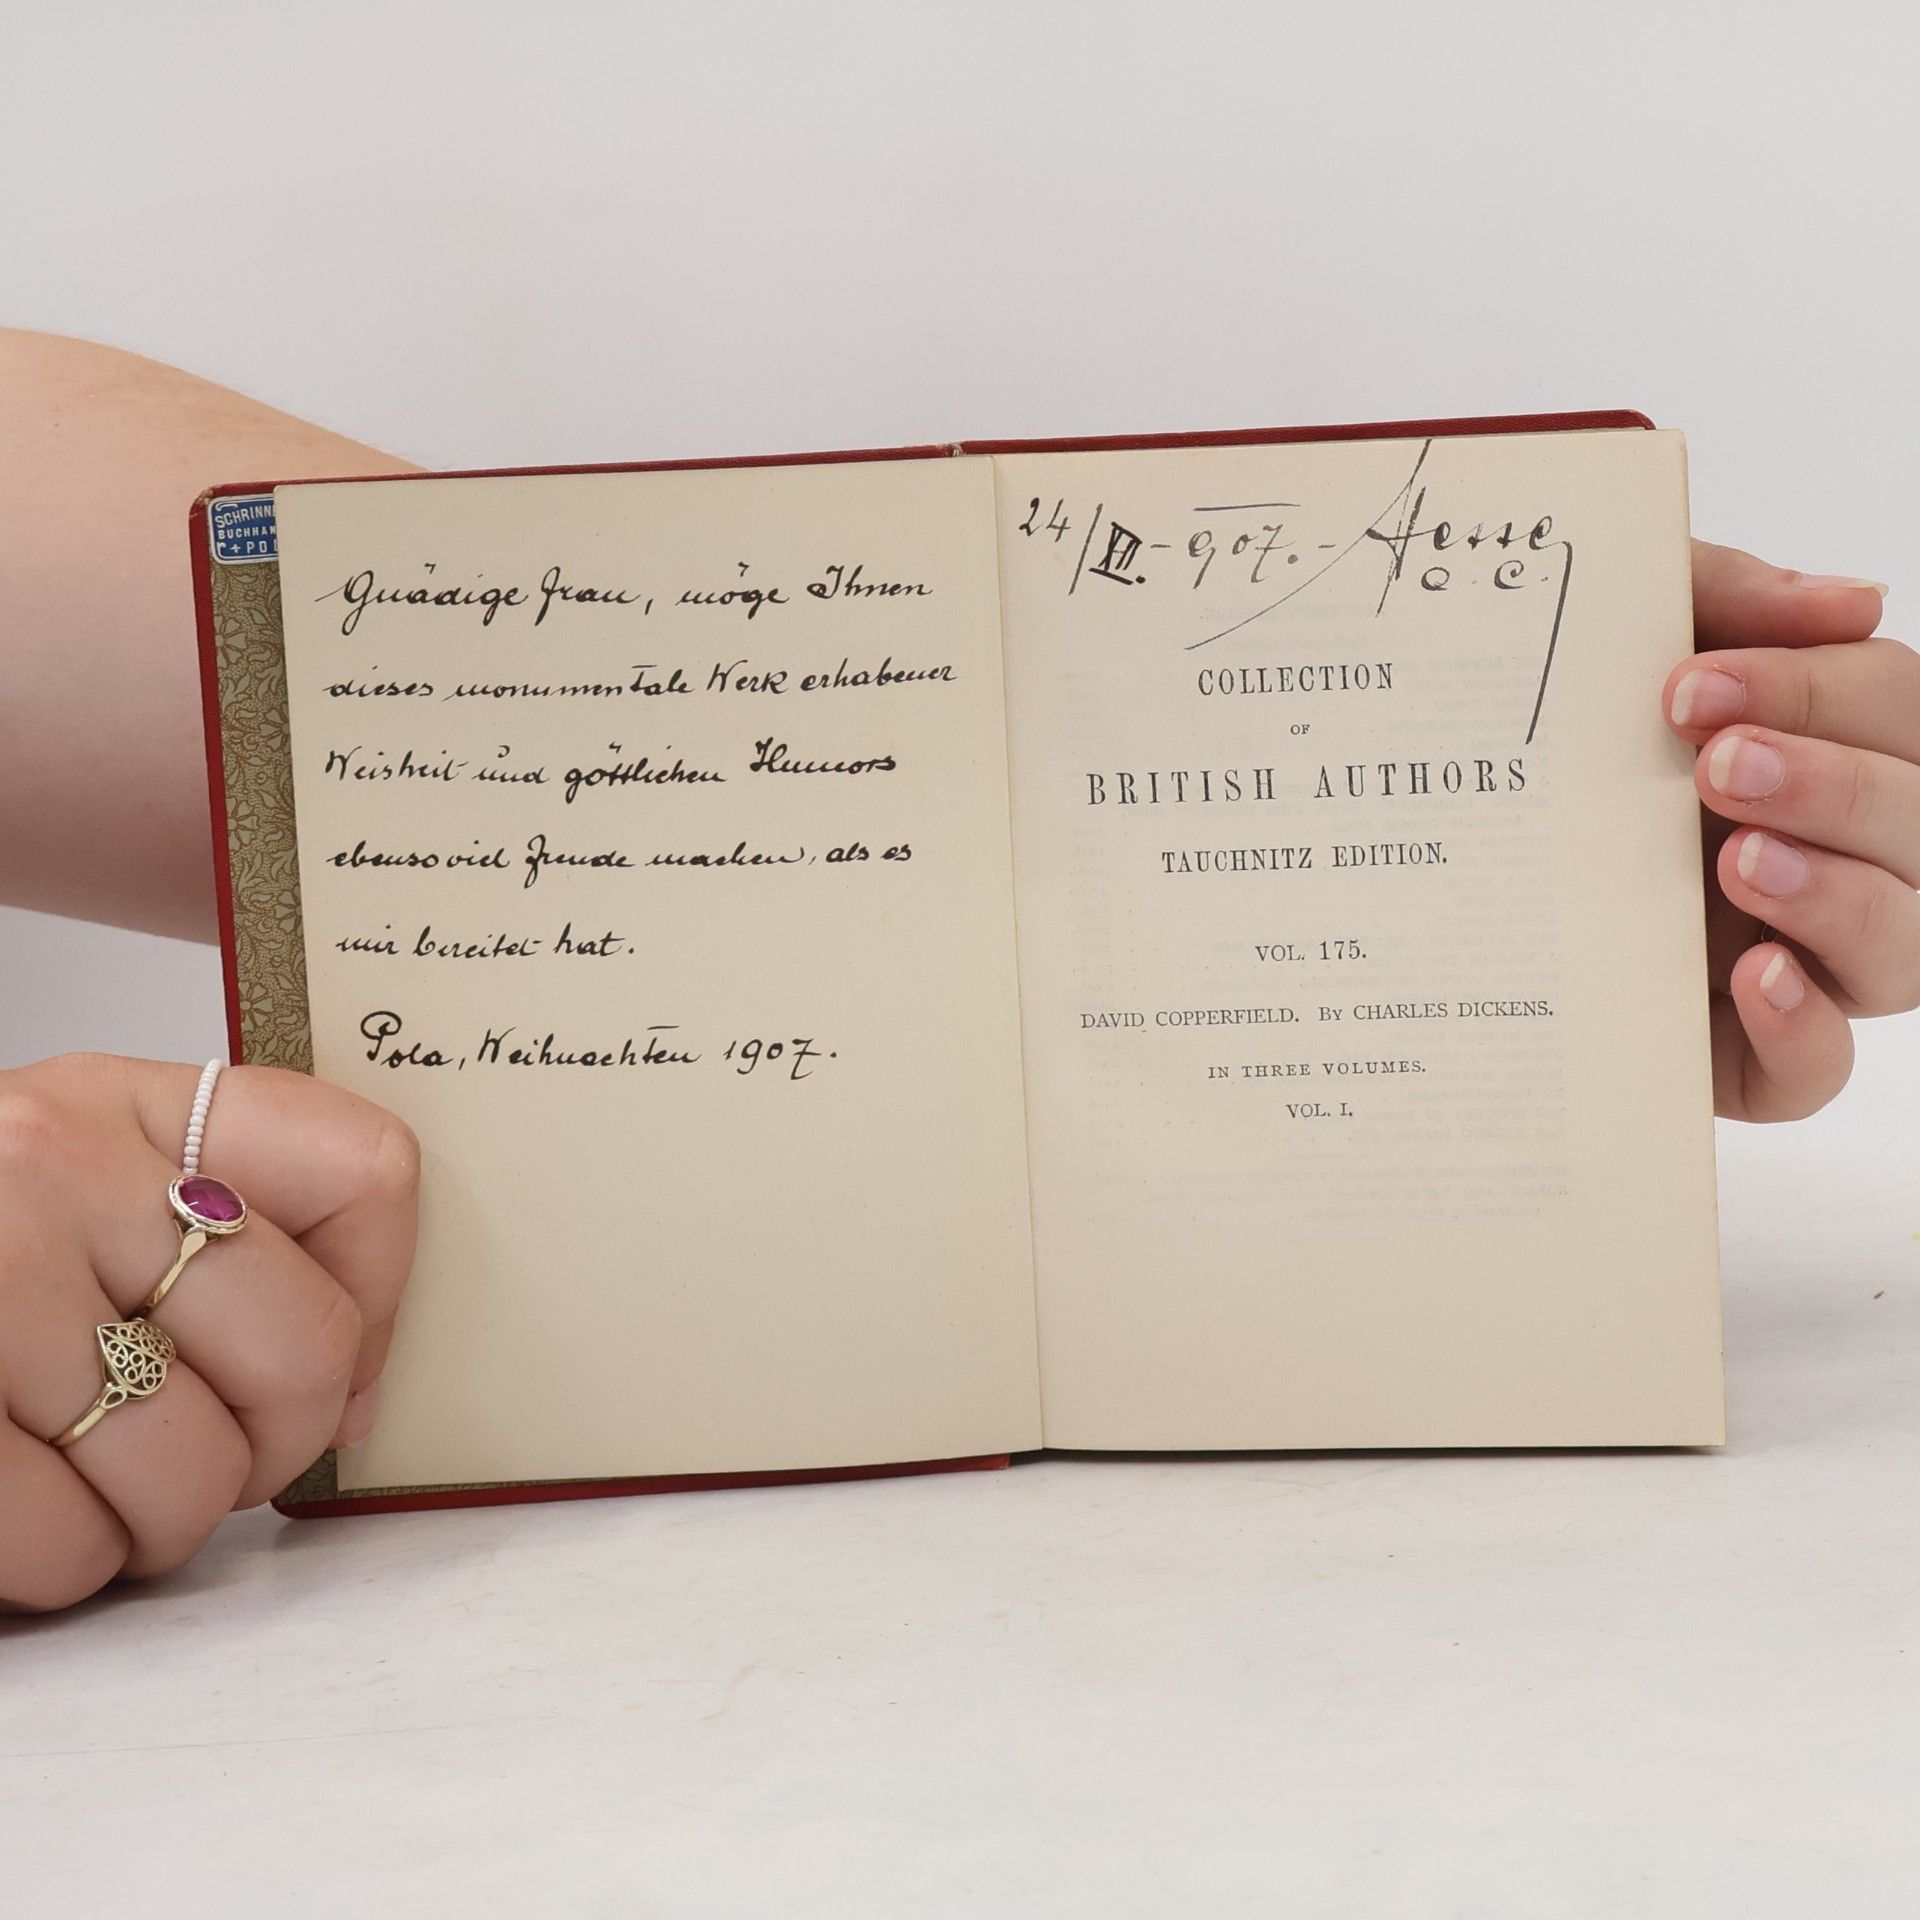 SCHRINN
BUCHHAN
+ POL
Gnädige Frau, möge Ihnen
dieses monumentale Werk erhabener
Weisheit und göttlichen Humors
ebensoviel Freude machen, als es
mir bereitet hat.
Pola, Weihnachten 1907.
24/XII.-907.- Hesse
COLLECTION
OF
BRITISH AUTHORS
TAUCHNITZ EDITION.
VOL. 175.
DAVID COPPERFIELD. BY CHARLES DICKENS.
IN THREE VOLUMES.
VOL. I.